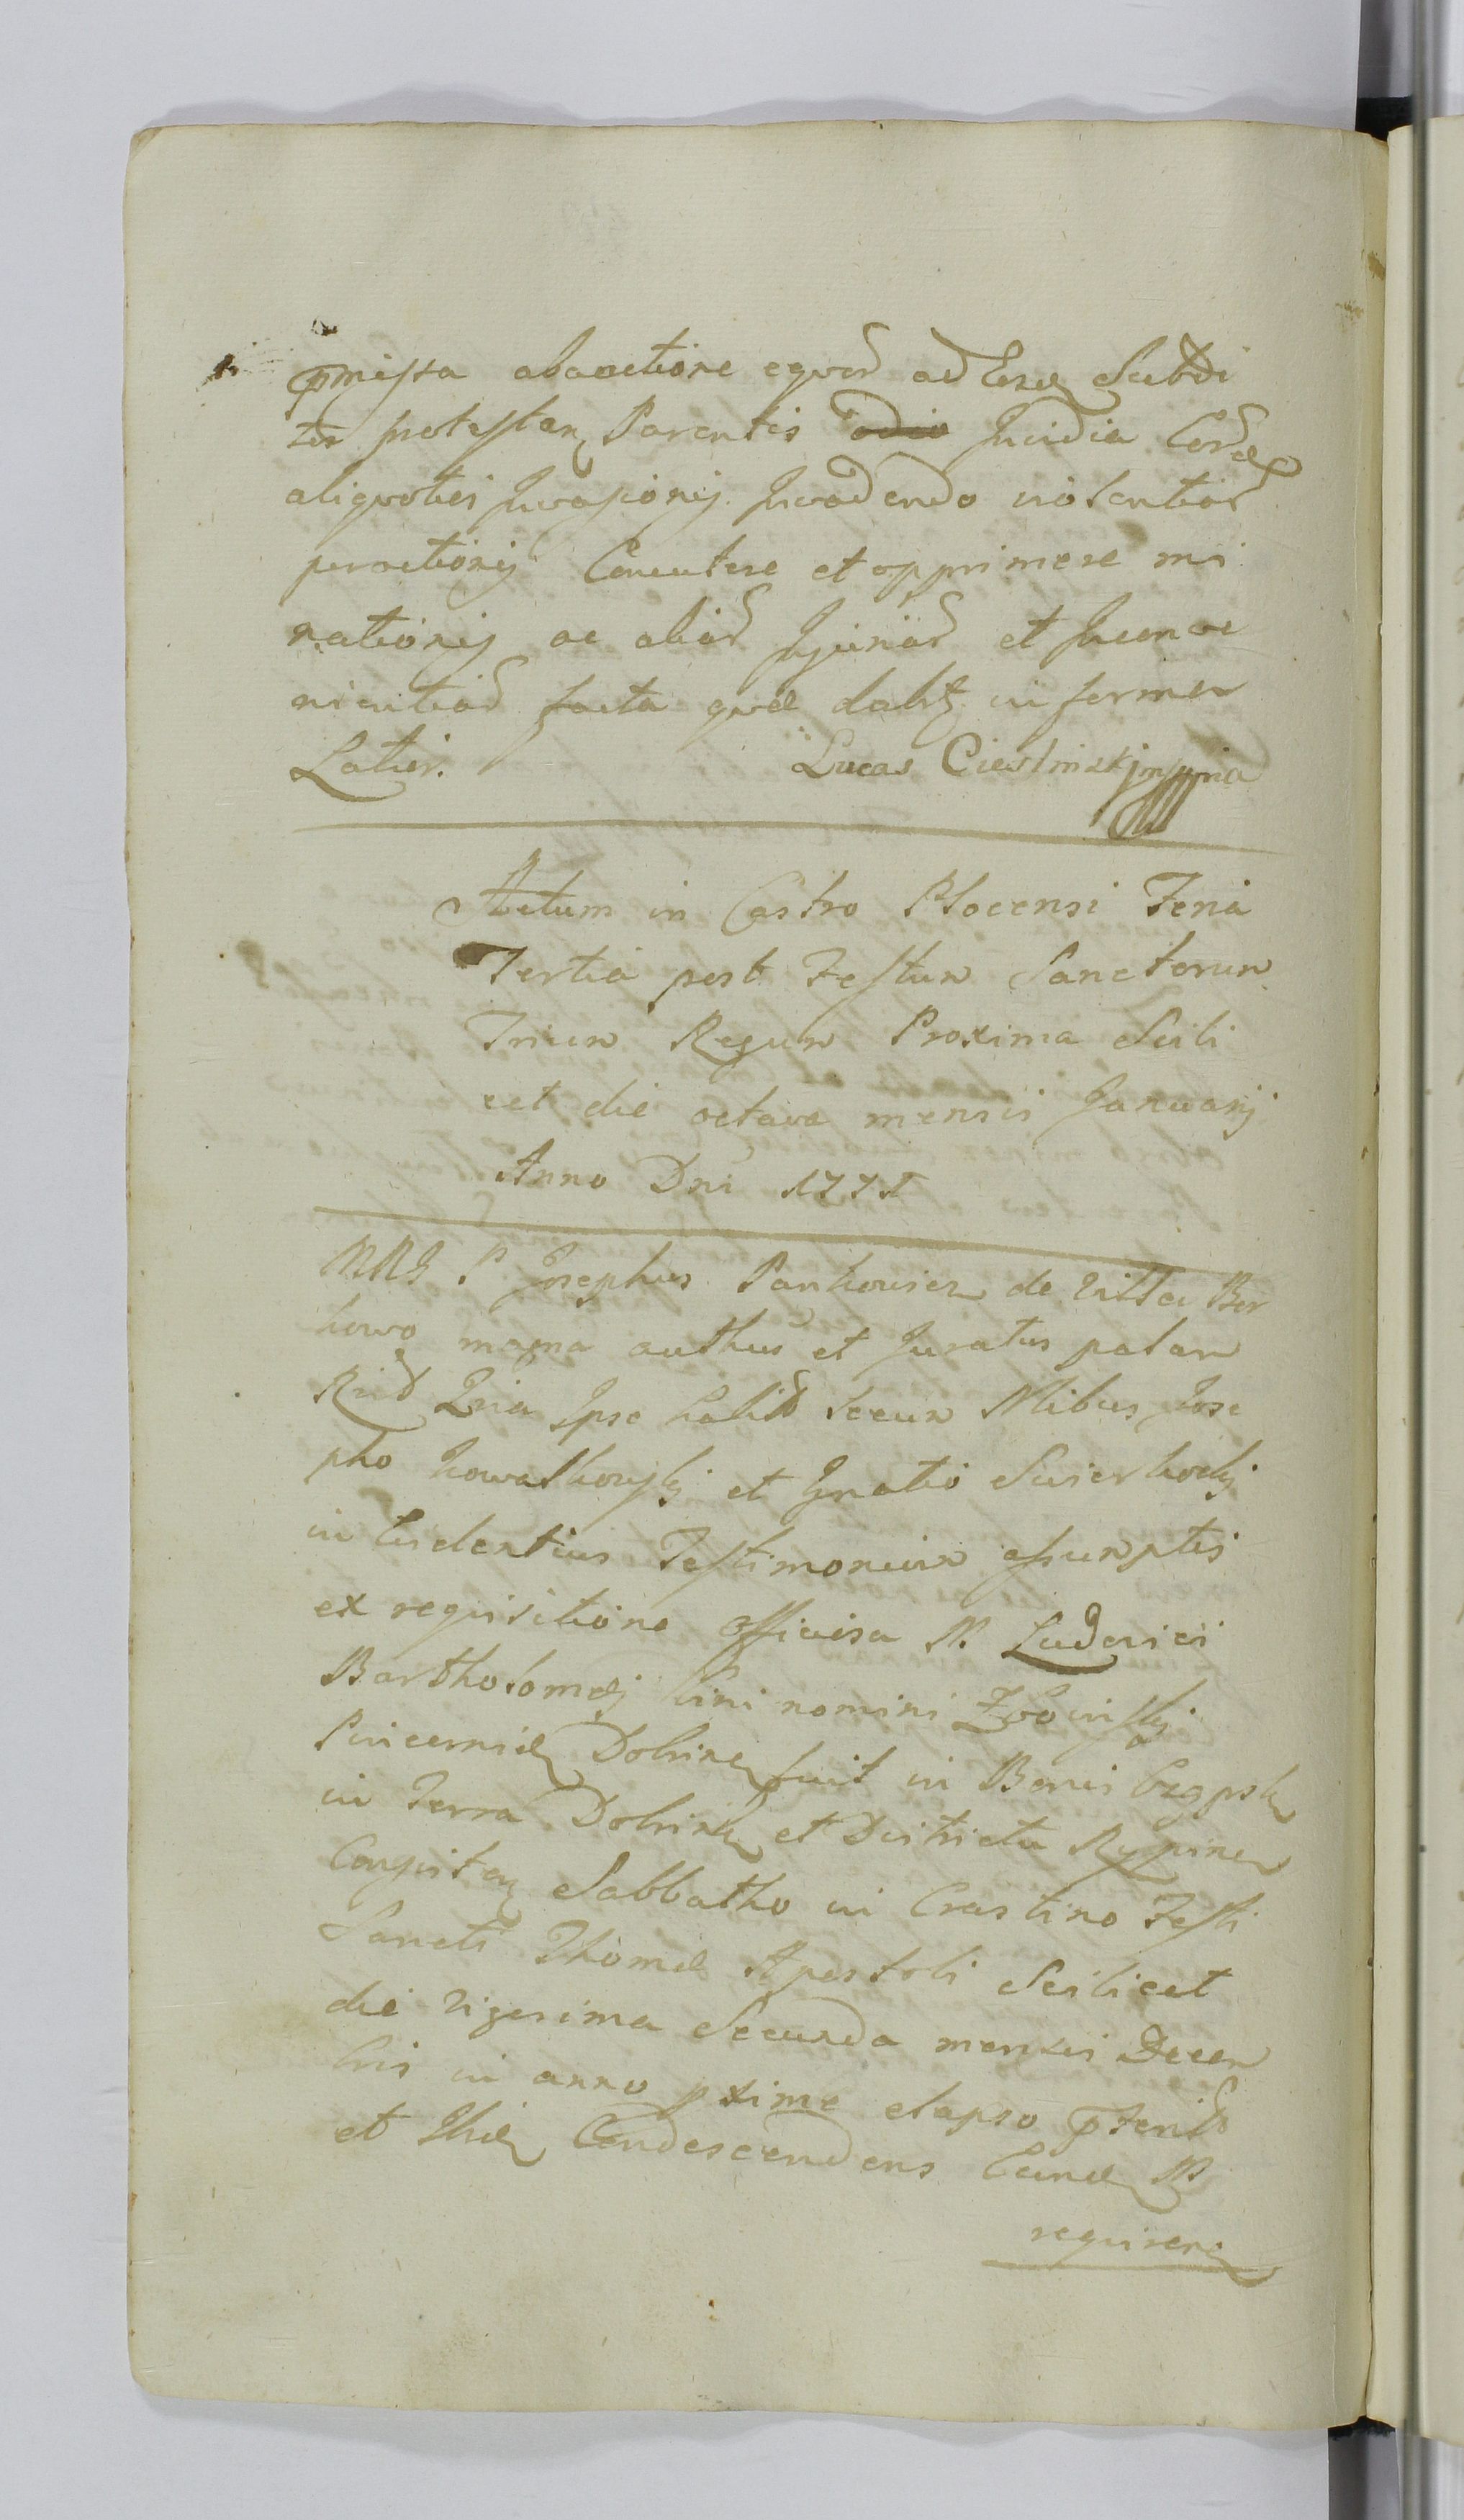 pmissa abactione eqvor ad Subdi
tos protestan Parentis odio Invidia
aliqvoties Invasionij Invadendo violentiar
peractionij Concutere et opprimere mi
nationij ac aliar Injuriar et Inconve
nientiar facta qvæ dabit in forma
Latior. Lucas Cieslinski mppria
Actum in Castro Plocensi Feria
Tertia post Festum Sanctorum
Trium Regum Proxima Scili
cet die octava mensis Januarij
Anno Dni 1771
MRG P Josephus Pankowicz de villa Bor
kowo magna authus et Juratus palam
Rnit Qvia Ipse habitis Secum Nlibus Jose
pho Kowalkowskj et Ignatio
in Evidentius Testimonium assumptis
ex reqvisitione officiosa M. Ludovici
Bartholomej bini nomini Zboinskj
Pincernidæ Dobrinen fuit in Bonis
in Terra Dobrinen et Districtu Rypinen
Consisten Sabbatho in Crastino Festi
Sancti Thomæ Apostoli Scilicet
die vigesima Secunda mensis Decem
bris in anno pxime elapso pterito
et Ibidem Condescendens M
reqviren